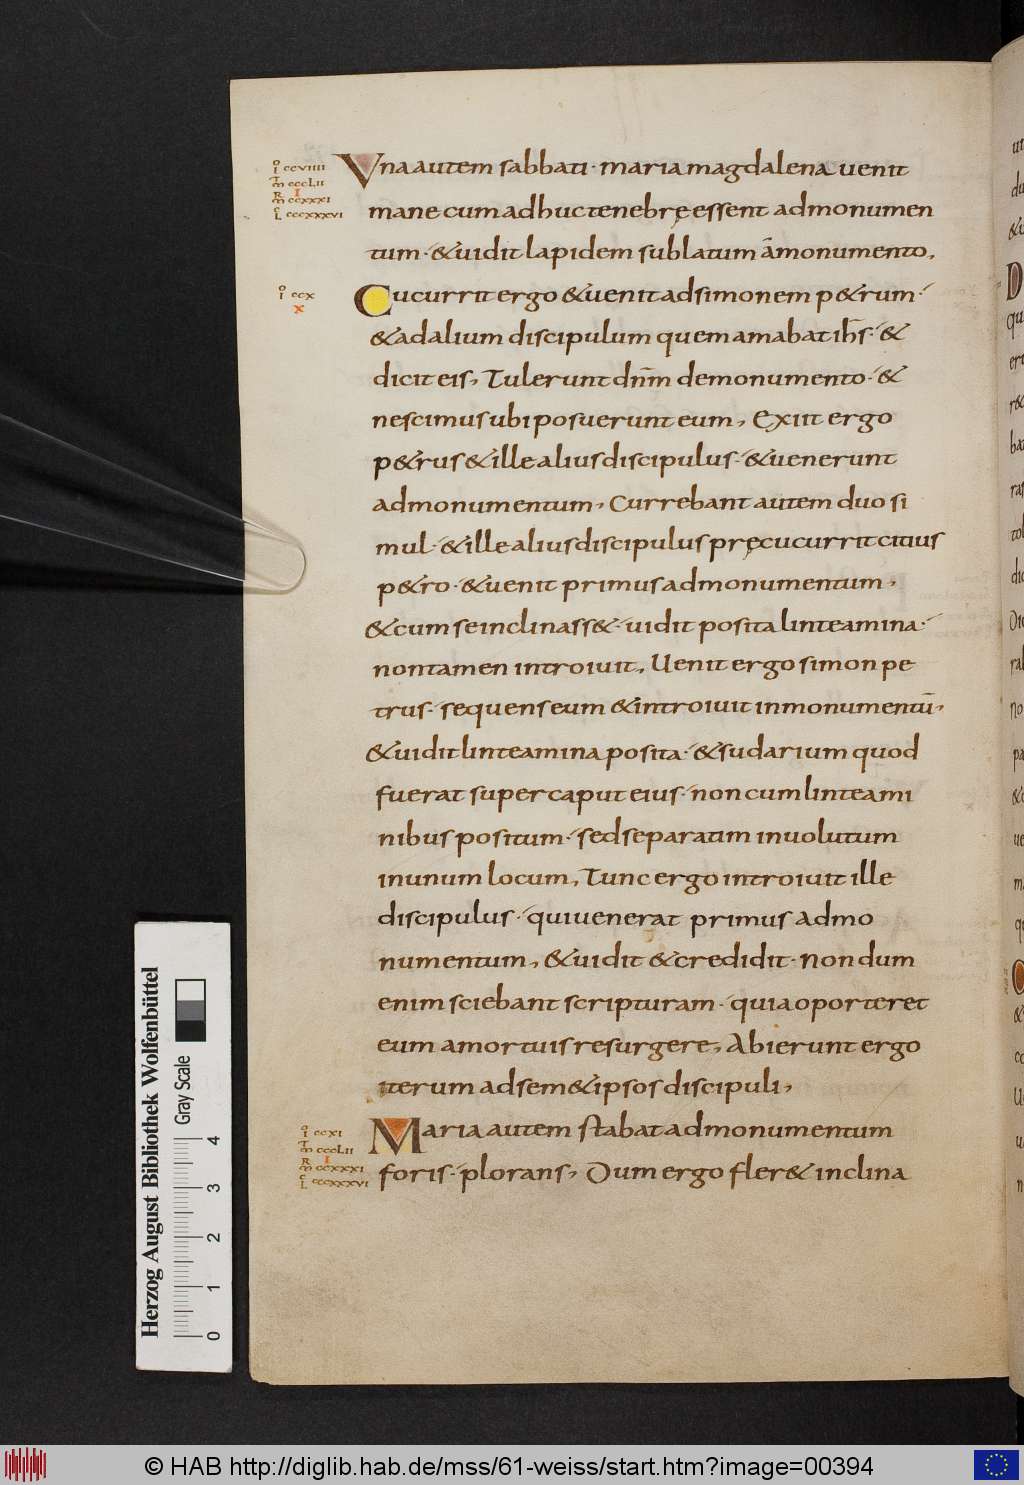 Una autem sabbati· maria magdalena uenit
mane cum adhuc tenebrę essent ad monumen
tum· & uidit lapidem sublatum a monumento,
Cucurrit ergo & uenit ad simonem p&rum·
& ad alium discipulum quem amabat ih̅s· &
dicit eis, Tulerunt dn̅m de monumento· &
nescimus ubi posuerunt eum, Exiit ergo
p&rus & ille alius discipulus· & uenerunt
ad monumentum, Currebant autem duo si
mul· & ille alius discipulus pręcucurrit citius
p&ro· & uenit primus ad monumentum,
& cum se inclinass&· uidit posita linteamina·
non tamen introiuit, Uenit ergo simon pe
trus· sequens eum & introiuit in monumentū,
& uidit linteamina posita· & sudarium quod
fuerat super caput eius· non cum linteami
nibus positum· sed separatim inuolutum
in unum locum, Tunc ergo introiuit ille
discipulus· qui uenerat primus ad mo
numentum, & uidit & credidit· Non dum
enim sciebant scripturam· quia oporteret
eum a mortuis resurgere, Abierunt ergo
iterum ad sem&ipsos discipuli,
Maria autem stabat ad monumentum
foris· plorans, Dum ergo fler& inclina
I ccviiii
m cccLii
I
m ccxxxi
L cccxxxvi
I ccx
x
I ccxi
m cccLii
I
m ccxxxi
L cccxxxvi
Herzog August Bibliothek Wolfenbüttel
Gray Scale
0 1 2 3 4
© HAB http://diglib.hab.de/mss/61-weiss/start.htm?image=00394